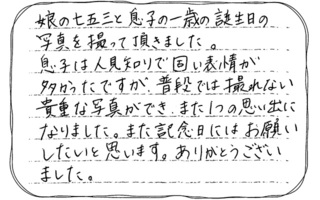 娘の七五三と息子の一歳の誕生日の
写真を撮って頂きました。
息子は人見知りで固い表情が
多かったですが、普段では撮れない
貴重な写真ができ、また1つの思い出に
なりました。また記念日にはお願い
したいと思います。ありがとうござい
ました。